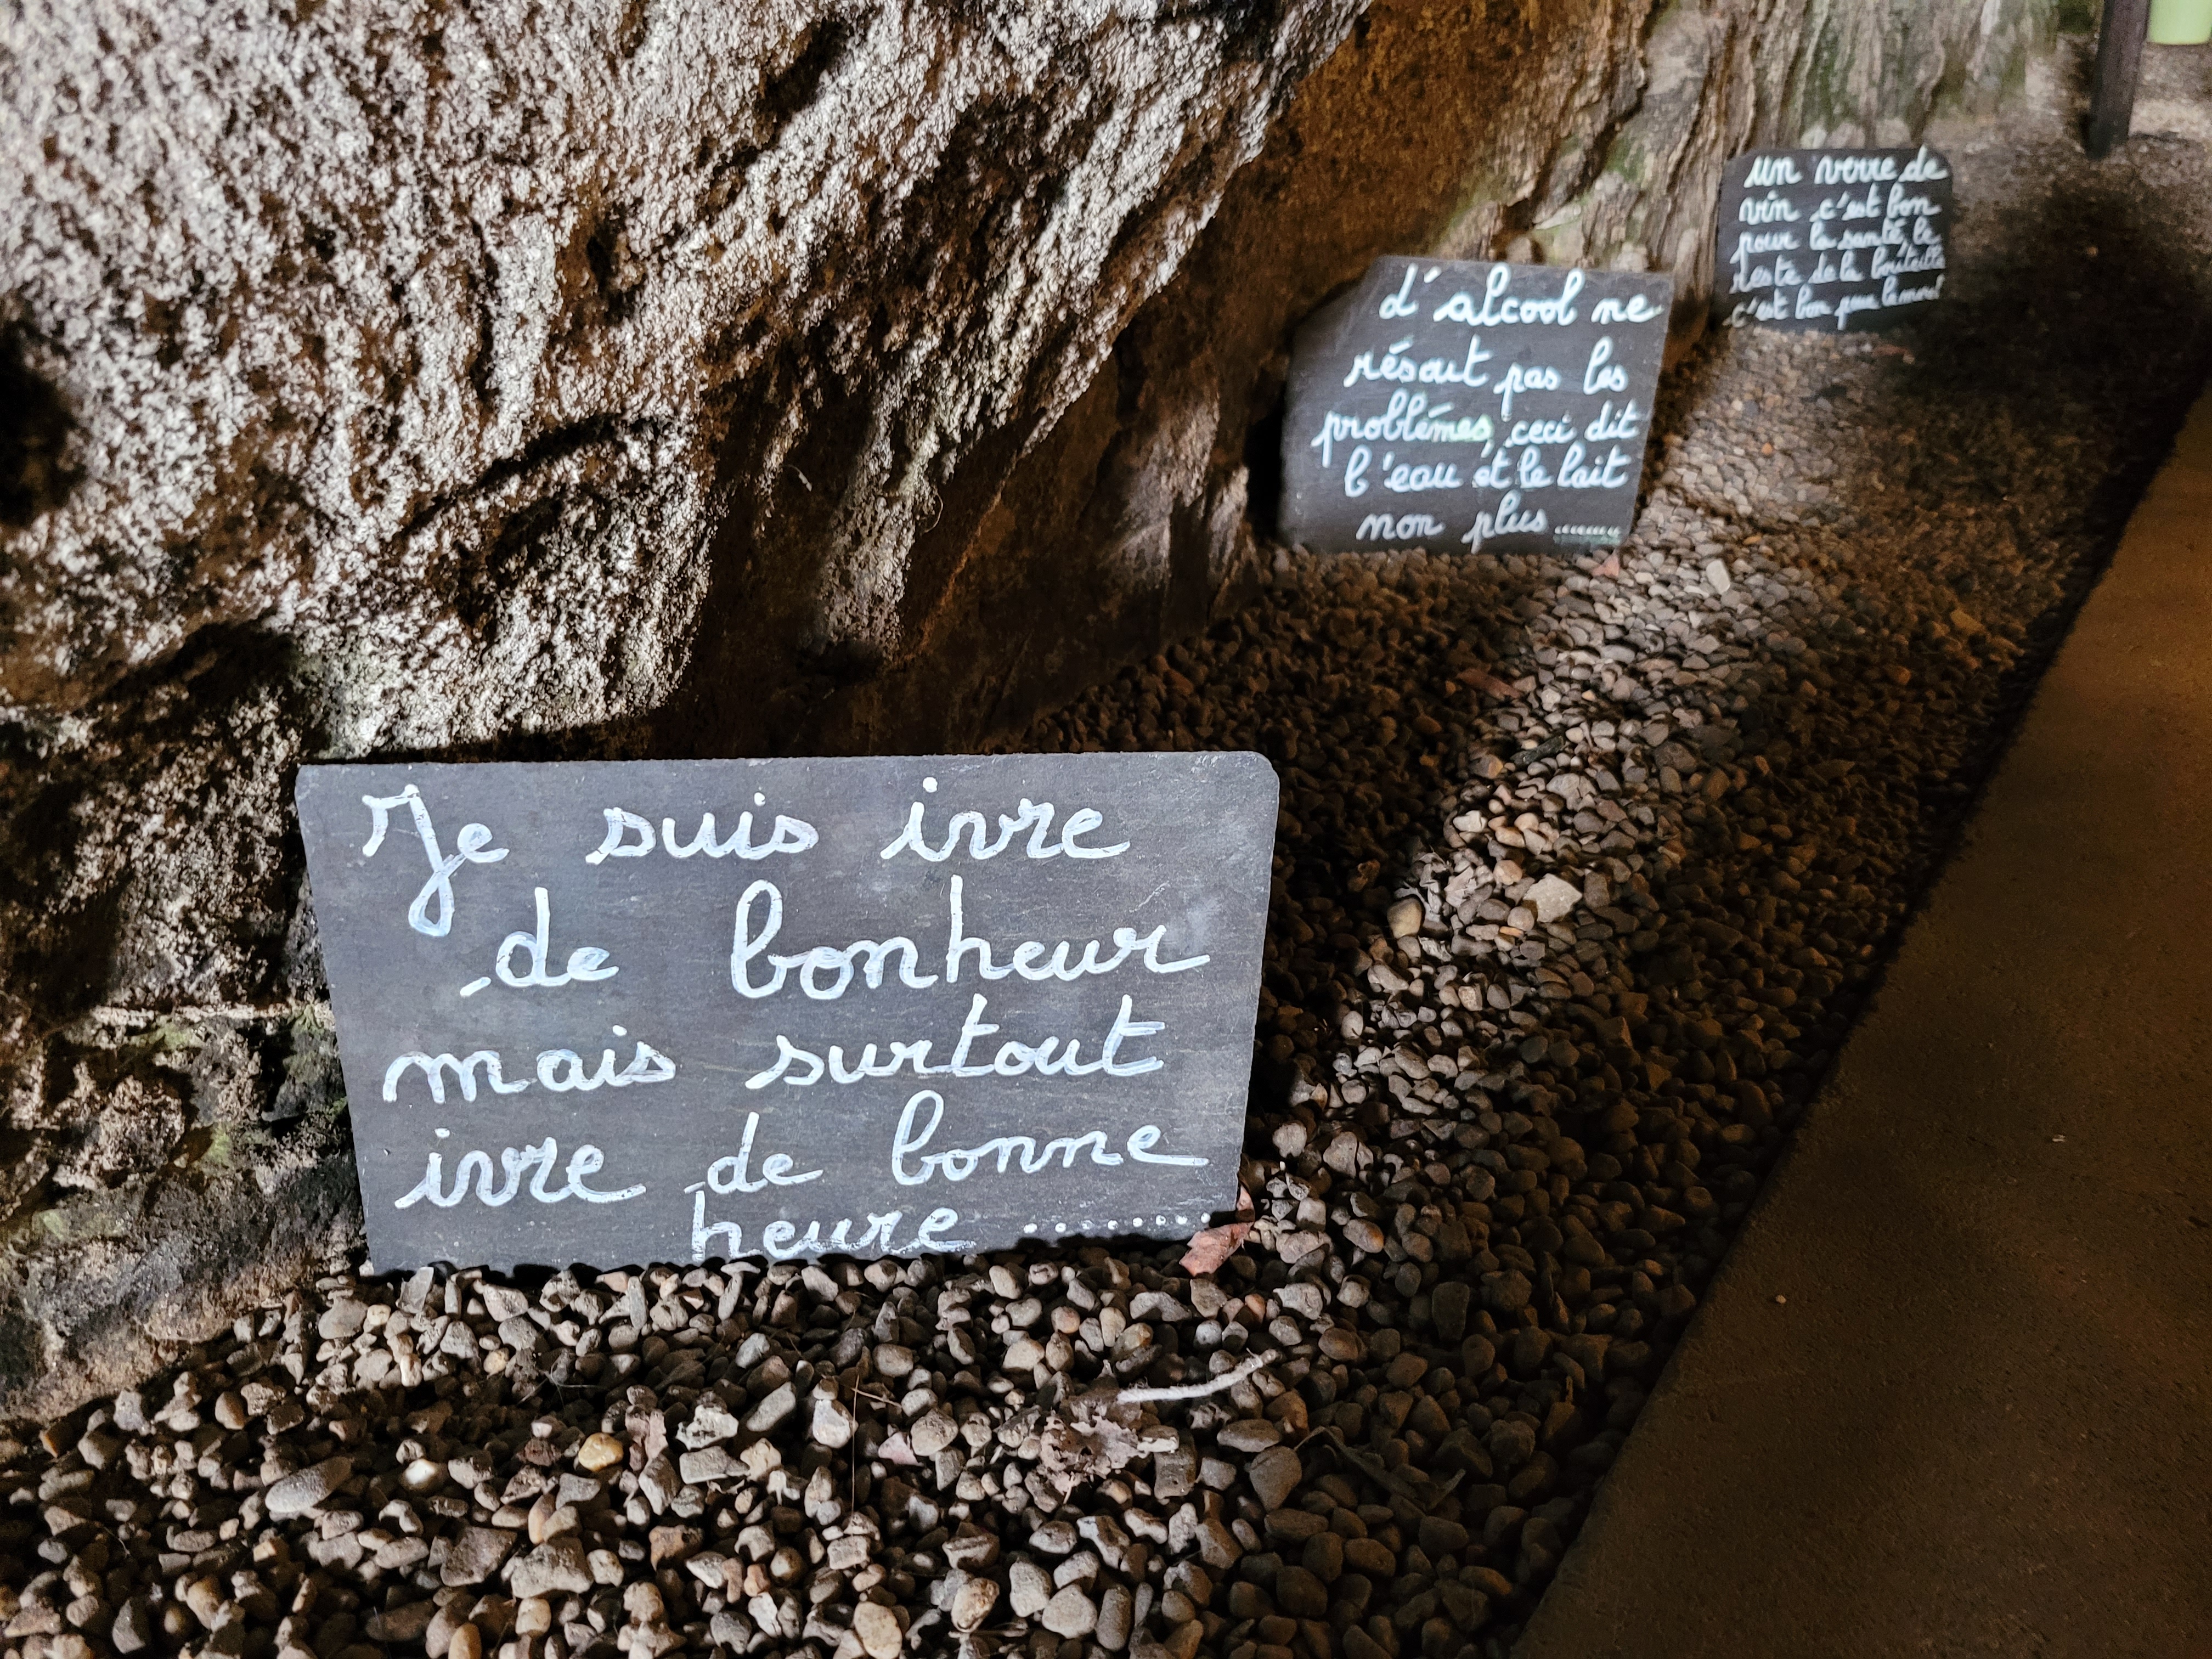 Je suis ivre
de bonheur
mais surtout
ivre de bonne
heure ........
d'alcool ne
résout pas les
problèmes, ceci dit
l'eau et le lait
non plus ........
un verre de
vin c'est bon
pour la santé, le
reste de la bouteille
c'est bon pour le moral